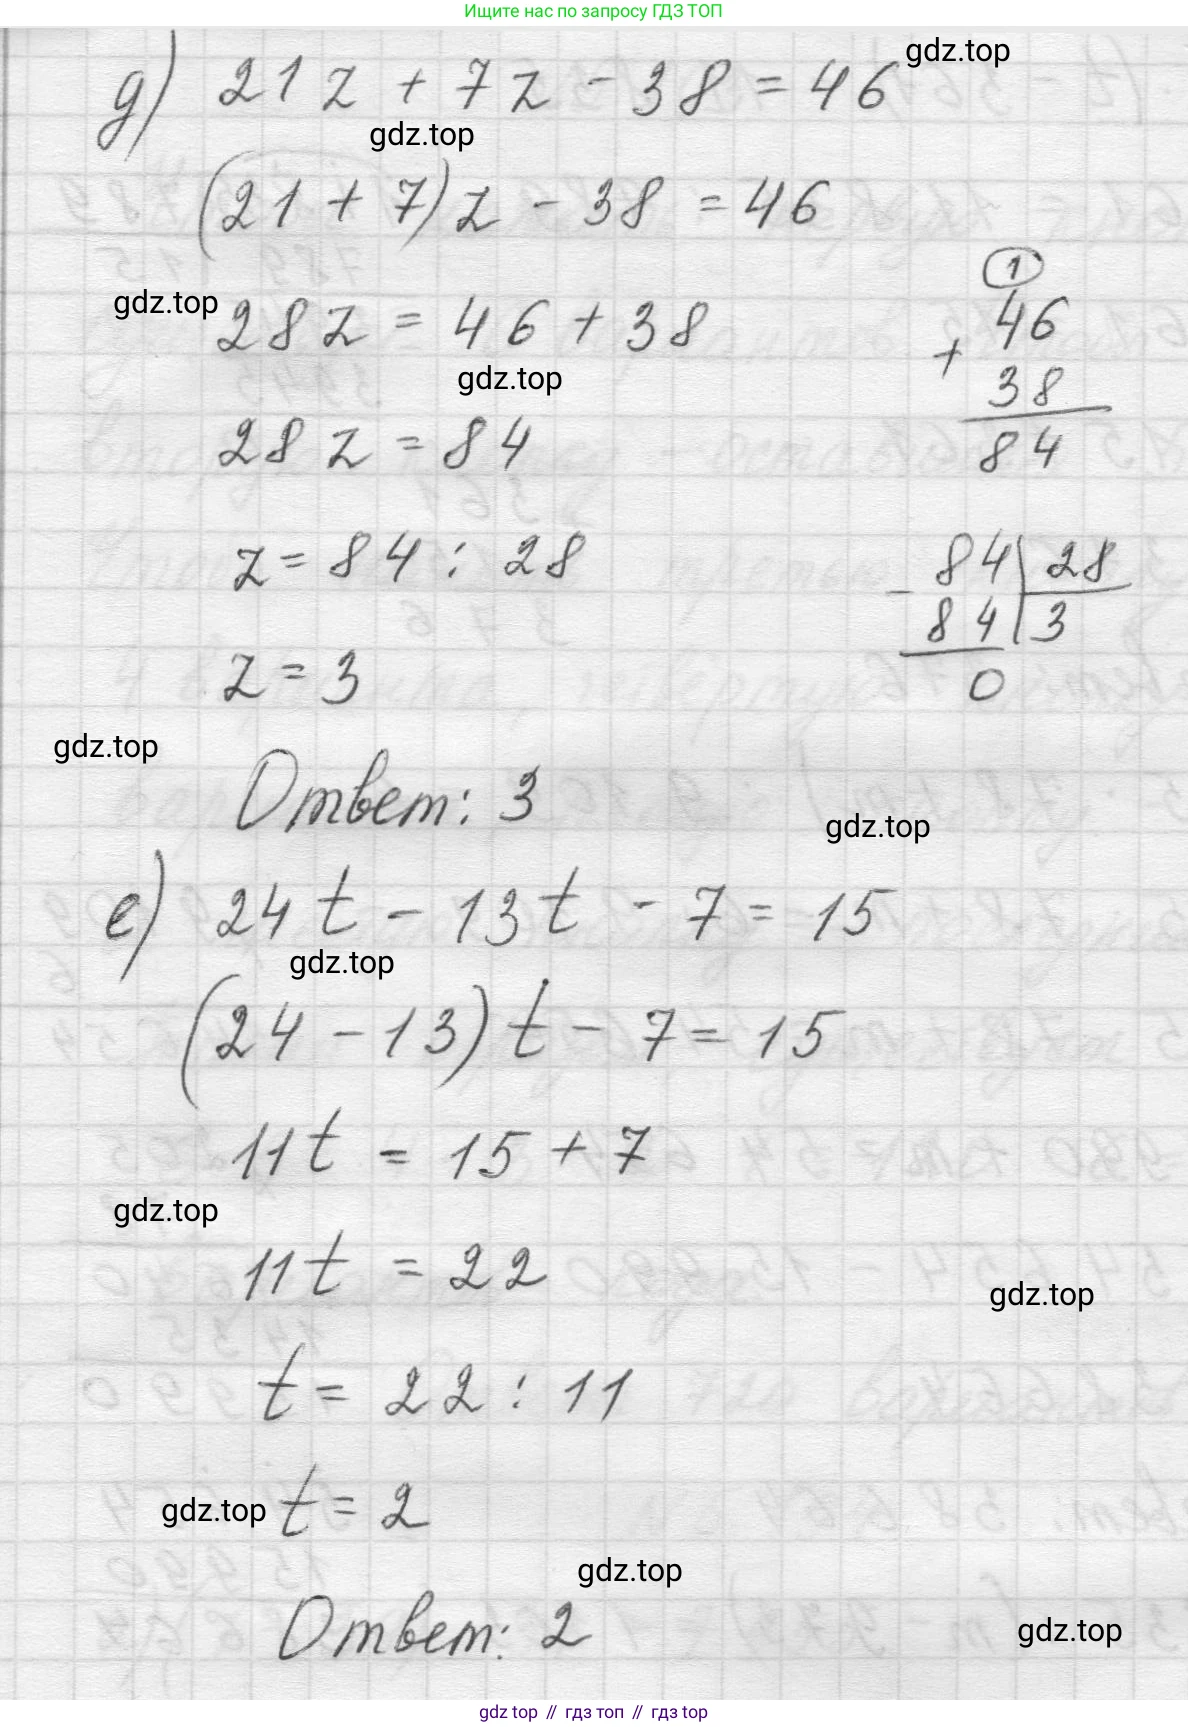 Ищите нас по запросу ГДЗ ТОП
gdz.top
д) 21z + 7z - 38 = 46
gdz.top
(21 + 7)z - 38 = 46
gdz.top
28z = 46 + 38
gdz.top
28z = 84
z = 84 : 28
z = 3
1
46
+
38
84
- 84 28
84 3
0
gdz.top
Ответ: 3
gdz.top
е) 24t - 13t - 7 = 15
gdz.top
(24 - 13)t - 7 = 15
11t = 15 + 7
gdz.top
11t = 22
gdz.top
t = 22 : 11
gdz.top
t = 2
gdz.top
Ответ: 2
gdz.top
gdz top // гдз топ // gdz top